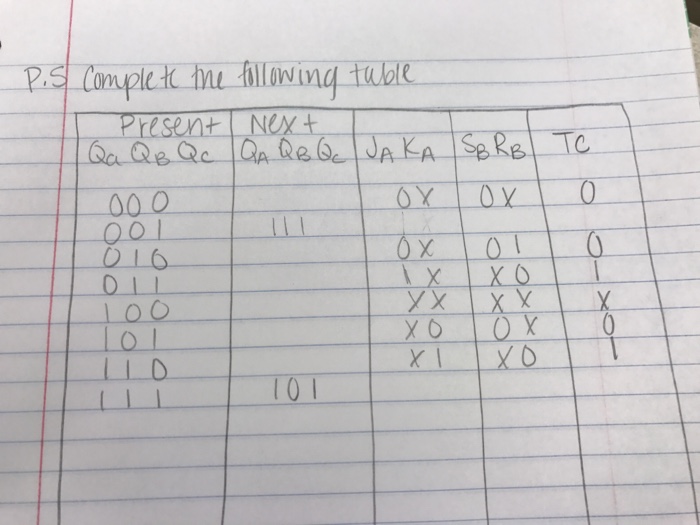 P.S Complete the following table
Present Next
Qa QB Qc QA QB Qc JA KA SB RB TC
000 0X 0X 0
001 111
010 0X 01 0
011 1X X0 1
100 XX XX X
101 X0 0X 0
110 X1 X0 1
111 101